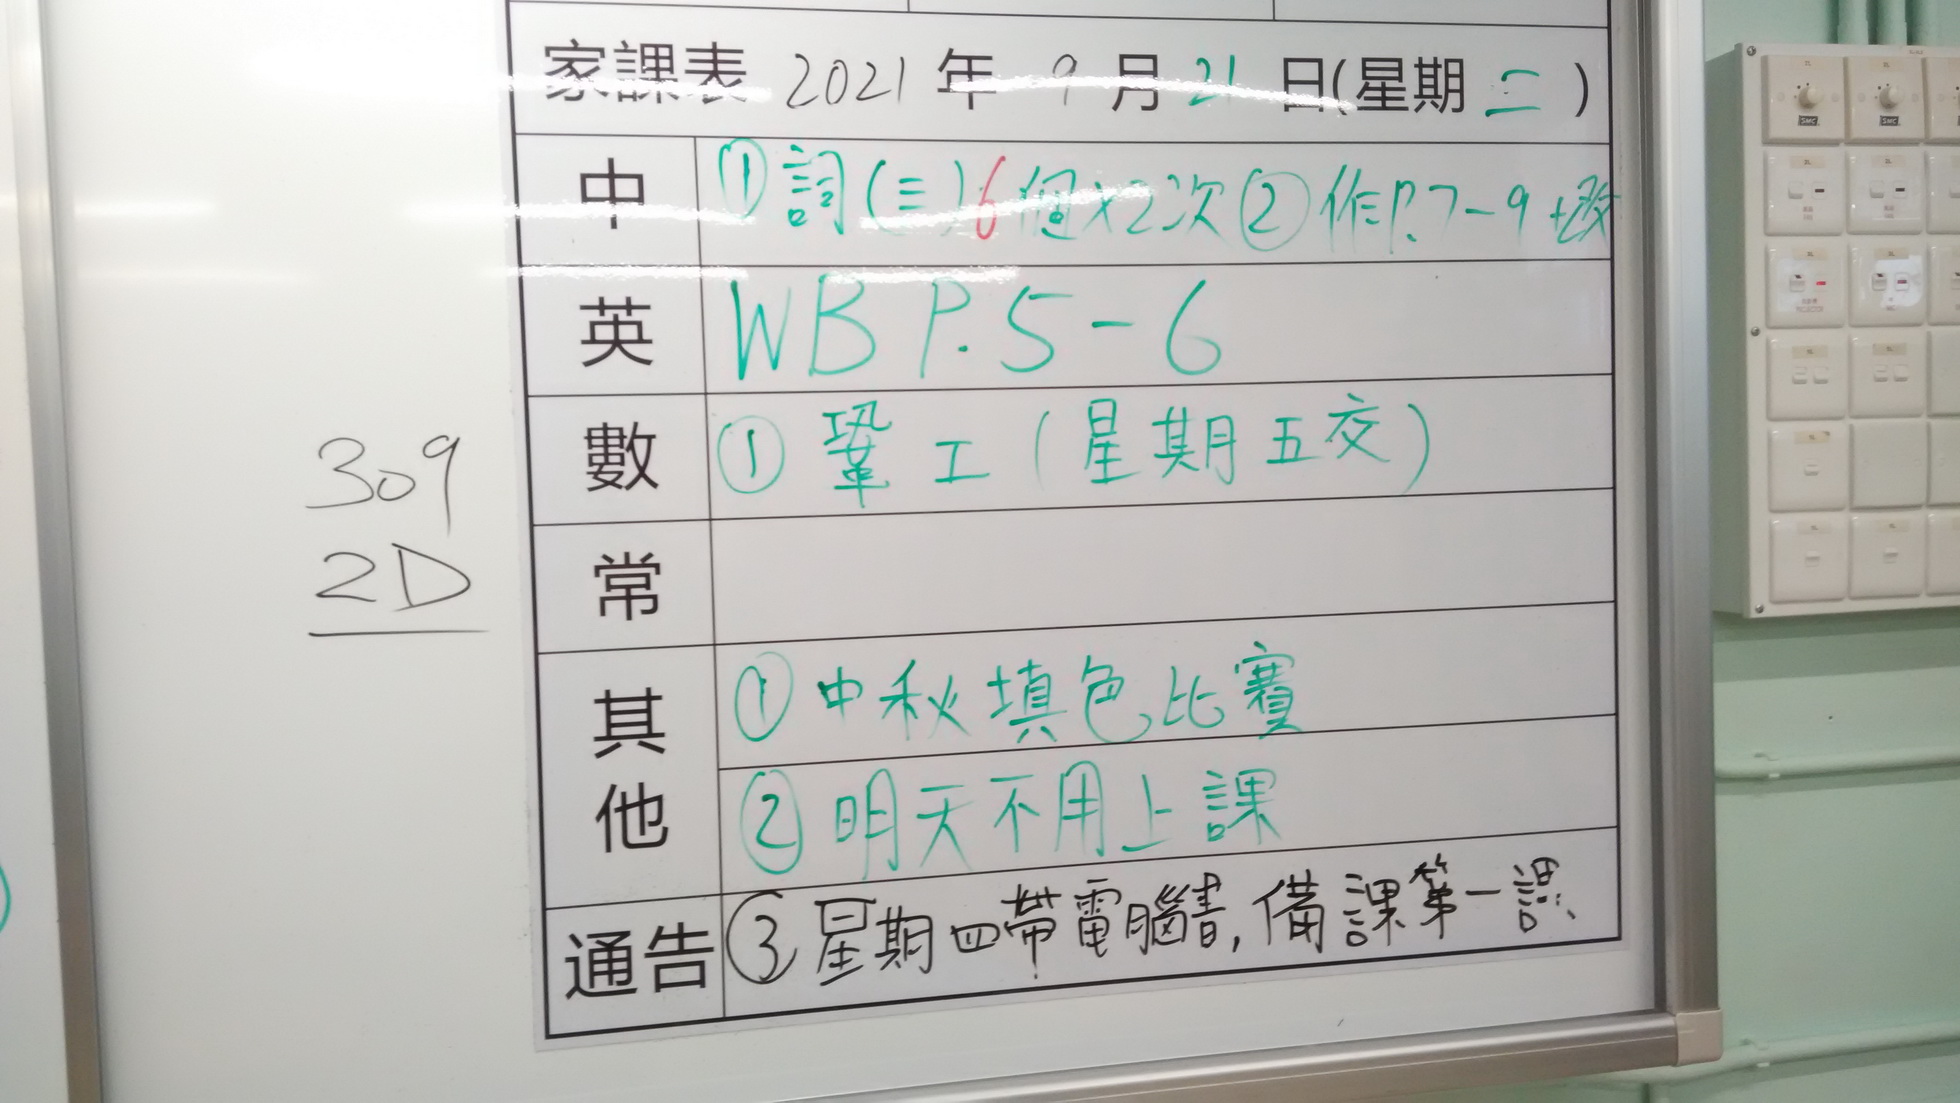 家課表 2021 年 9 月 21 日(星期 二 )
中 ① 詞(三) 6個×2次 ② 作P.7-9+改
英 WB P.5-6
數 ① 鞏工(星期五交)
常
其他 ① 中秋填色比賽
② 明天不用上課
通告 ③ 星期四帶電腦書,備課第一課
309
2D